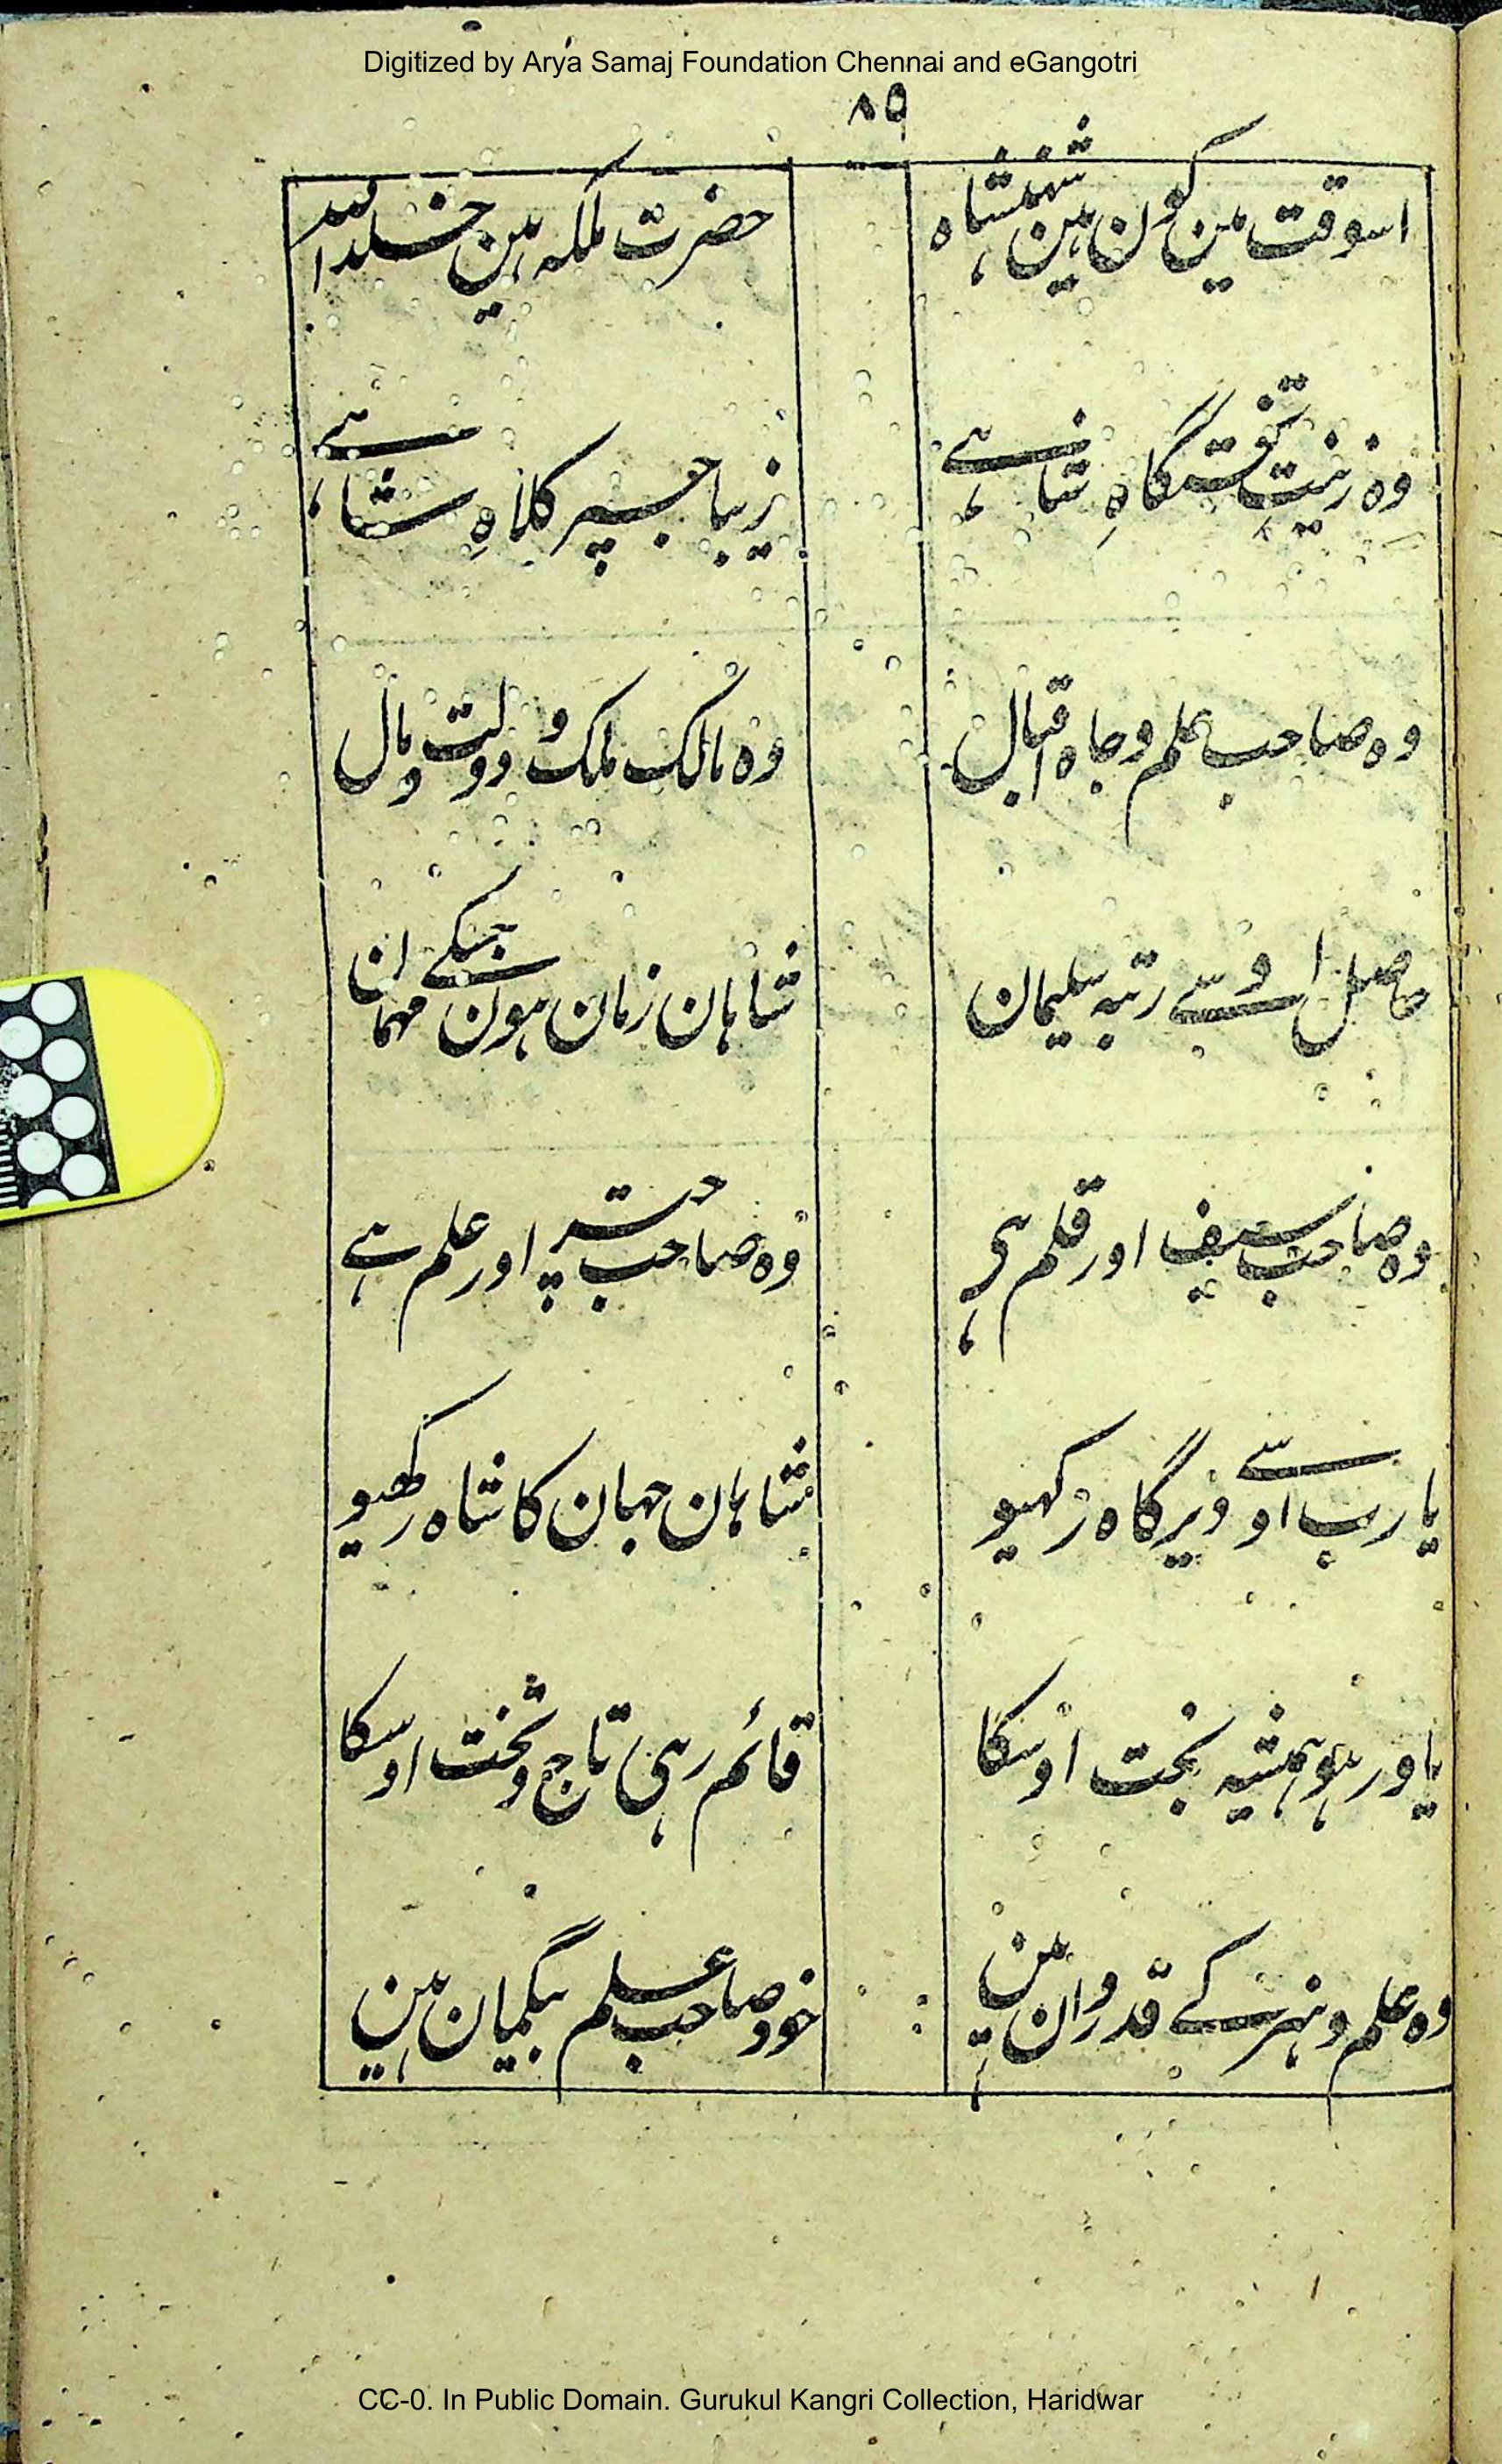 Digitized by Arya Samaj Foundation Chennai and eGangotri
۸۵
اسوقت مین کون ہین شہنشاہ
حضرت ملکہ ہین خلد اللہ
وہ زینتِ تختگاہِ شاہی ہے
زیبا جسپر کلاہِ شاہی ہے
وہ صاحب علم و جاہ اقبال
وہ مالک ملک و دولت و مال
حاصل اوسے رتبہ سلیمان
شاہان زمان ہون جسکے مہمان
وہ صاحب سیف اور قلم ہی
وہ صاحب چتر اور علم ہے
یارب اوسے دیرگاہ رکہیو
شاہان جہان کا شاہ رکھیو
یاور ہو ہمیشہ بخت اوسکا
قائم رہی تاج و تخت اوسکا
وہ علم و ہنر کے قدردان ہین
خود صاحب علم بیگمان ہین
CC-0. In Public Domain. Gurukul Kangri Collection, Haridwar